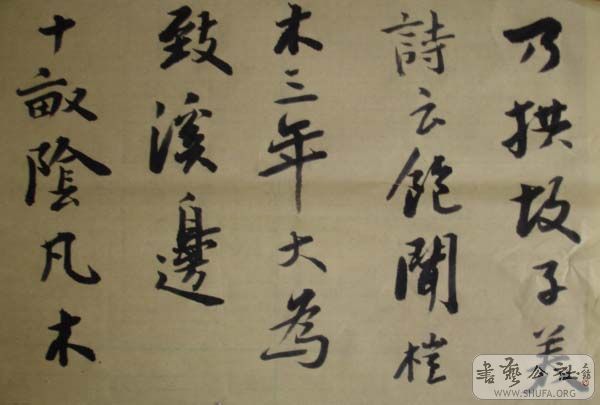 乃拱故子美
詩云飽聞榿
木三年大為
致溪邊
十畝陰凡木
書藝公社
WWW.SHUFA.ORG